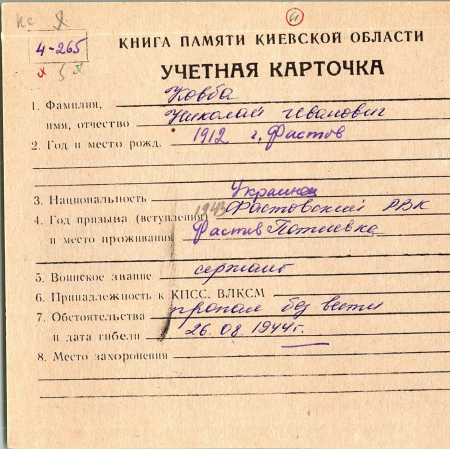 4-265
КНИГА ПАМЯТИ КИЕВСКОЙ ОБЛАСТИ
УЧЕТНАЯ КАРТОЧКА
1. Фамилия, Ковба
имя, отчество Николай Иванович
2. Год и место рожд. 1912 г, Фастов
3. Национальность Украинец
4. Год призыва (вступления) 1943 Фастовский РВК
и место проживания Фастив Потиевка
5. Воинское звание сержант
6. Принадлежность к КПСС, ВЛКСМ
7. Обстоятельства пропал без вести
и дата гибели 26.08.1944г.
8. Место захоронения